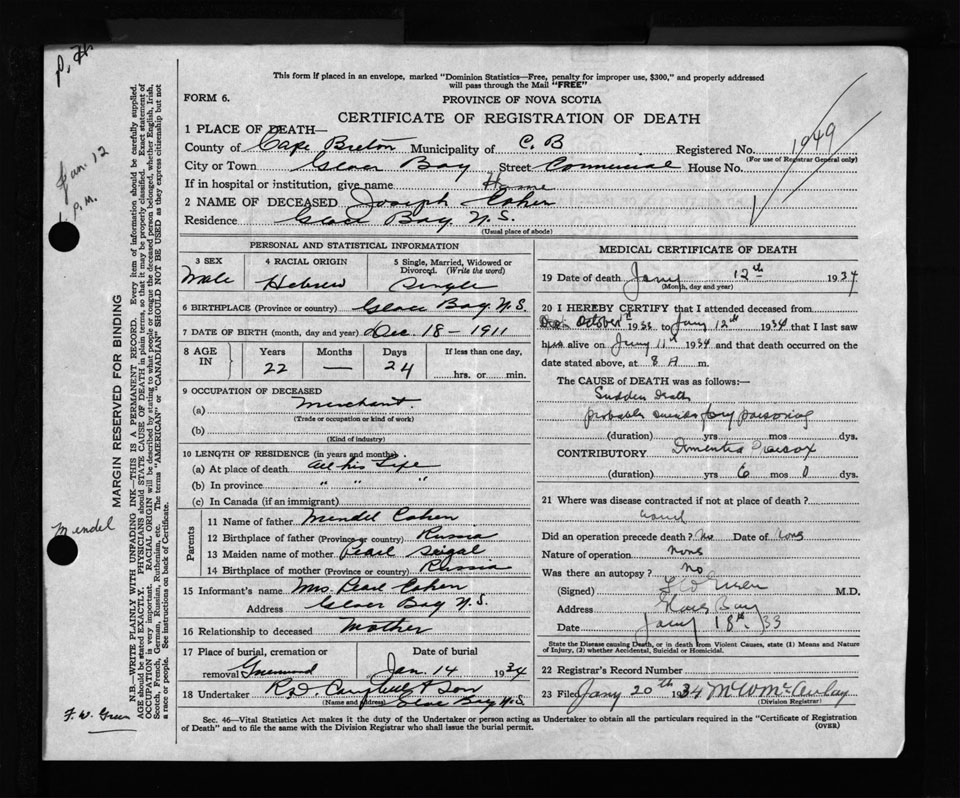 This form if placed in an envelope, marked "Dominion Statistics—Free, penalty for improper use, $300," and properly addressed
will pass through the Mail "FREE"
FORM 6.
PROVINCE OF NOVA SCOTIA
CERTIFICATE OF REGISTRATION OF DEATH
1 PLACE OF DEATH—
County of Cape Breton Municipality of C. B Registered No. 1949
(For use of Registrar General only)
City or Town Glace Bay Street Commercial House No.
If in hospital or institution, give name Home
2 NAME OF DECEASED Joseph Cohen
Residence Glace Bay N. S.
(Usual place of abode)
PERSONAL AND STATISTICAL INFORMATION
3 SEX
Male
4 RACIAL ORIGIN
Hebrew
5 Single, Married, Widowed or
Divorced. (Write the word)
Single
6 BIRTHPLACE (Province or country) Glace Bay N. S.
7 DATE OF BIRTH (month, day and year) Dec. 18 - 1911
8 AGE
IN
Years
22
Months
—
Days
24
If less than one day,
hrs. or min.
9 OCCUPATION OF DECEASED
(a) Merchant.
(Trade or occupation or kind of work)
(b)
(Kind of industry)
10 LENGTH OF RESIDENCE (in years and months)
(a) At place of death All his Life
(b) In province " " "
(c) In Canada (if an immigrant)
Parents
11 Name of father Mendel Cohen
12 Birthplace of father (Province or country) Russia
13 Maiden name of mother Pearl Seigal
14 Birthplace of mother (Province or country) Russia
15 Informant's name Mrs. Pearl Cohen
Address Glace Bay N. S.
16 Relationship to deceased Mother
17 Place of burial, cremation or
removal Greenwood
Date of burial
Jan. 14 1934
18 Undertaker Rod. Campbell & Son
(Name and address) Glace Bay N.S.
MEDICAL CERTIFICATE OF DEATH
19 Date of death Jany 12th 1934
(Month, day and year)
20 I HEREBY CERTIFY that I attended deceased from
October 1933 to Jany 12th 1934 that I last saw
him alive on Jany 11th 1934 and that death occurred on the
date stated above, at 8 A m.
The CAUSE OF DEATH was as follows:—
Sudden Death
probably suicide by poisoning
(duration) yrs mos dys.
CONTRIBUTORY Dementia Praecox
(duration) yrs 6 mos 0 dys.
21 Where was disease contracted if not at place of death?
Did an operation precede death? No Date of None
Nature of operation None
Was there an autopsy? No
(Signed) M.D.
Address Glace Bay
Date Jany 18th 33
State the Disease causing Death, or in death from Violent Causes, state (1) Means and Nature
of Injury, (2) whether Accidental, Suicidal or Homicidal.
22 Registrar's Record Number
23 Filed Jany 20th 1934 McAulay
(Division Registrar)
Sec. 46—Vital Statistics Act makes it the duty of the Undertaker or person acting as Undertaker to obtain all the particulars required in the "Certificate of Registration
of Death" and to file the same with the Division Registrar who shall issue the burial permit.
(OVER)
Jan. 12
P. M.
Mendel
F. W. Green
MARGIN RESERVED FOR BINDING
N.B.—WRITE PLAINLY WITH UNFADING INK—THIS IS A PERMANENT RECORD. Every item of information should be carefully supplied.
AGE should be stated EXACTLY. PHYSICIANS should STATE CAUSE OF DEATH in plain terms, so that it may be properly classified. Exact statement of
OCCUPATION is very important. RACIAL ORIGIN will be described by stating to what people or tongue the deceased person belonged, whether English, Irish,
Scotch, French, German, Russian, Ruthenian, etc. The terms "AMERICAN" or "CANADIAN" SHOULD NOT BE USED as they express citizenship but not
a race or people. See instructions on back of Certificate.